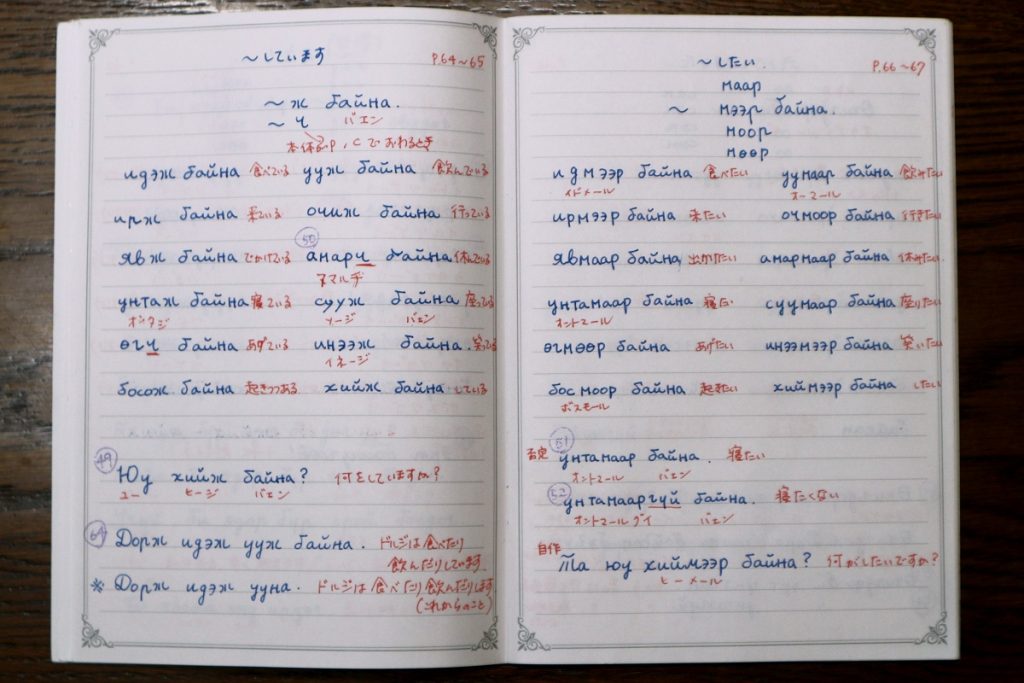 ～しています P.64～65
～ж байна.
～ч バェン
идэж байна 食べている ууж байна 飲んでいる
ирж байна 来ている очиж байна 行っている
50
явж байна でかけている амарч байна 休んでいる
アマルチ
унтаж байна 寝ている сууж байна 座っている
オンタジ ソージ バェン
өгч байна あげている инээж байна. 笑っている
イネージ
босож байна 起きつつある хийж байна している
49
Юу хийж байна? 何をしていますか?
ユー ヒージ バェン
Дорж идэж ууж байна. ドルジは食べたり
飲んだりしています
※ Дорж идэж ууна. ドルジは食べたり飲んだりします
(これからのこと)
～したい. P.66～67
маар
～ мээр байна.
моор
мөөр
идмээр байна 食べたい уумаар байна 飲みたい
イドメール オーマール
ирмээр байна 来たい очмоор байна 行きたい
явмаар байна 出かけたい амармаар байна 休みたい
унтамаар байна 寝たい суумаар байна 座りたい
オントマール
өгмөөр байна あげたい инээмээр байна 笑いたい
босмоор байна 起きたい хиймээр байна したい
ボスモール
51
否定 унтамаар байна. 寝たい
オントマール バェン
52
унтамааргүй байна. 寝たくない
オントマールグイ バェン
自作
Та юу хиймээр байна? 何がしたいですか?
ヒーメール